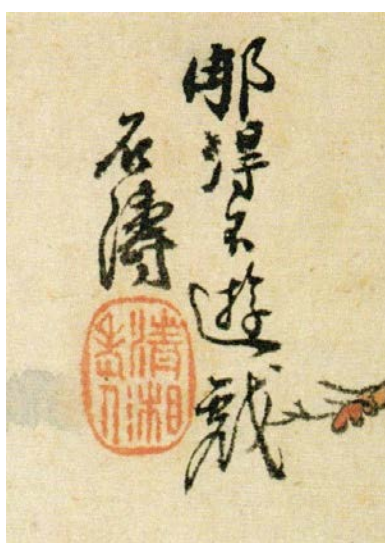 那得不遊戲
石濤
清湘老人